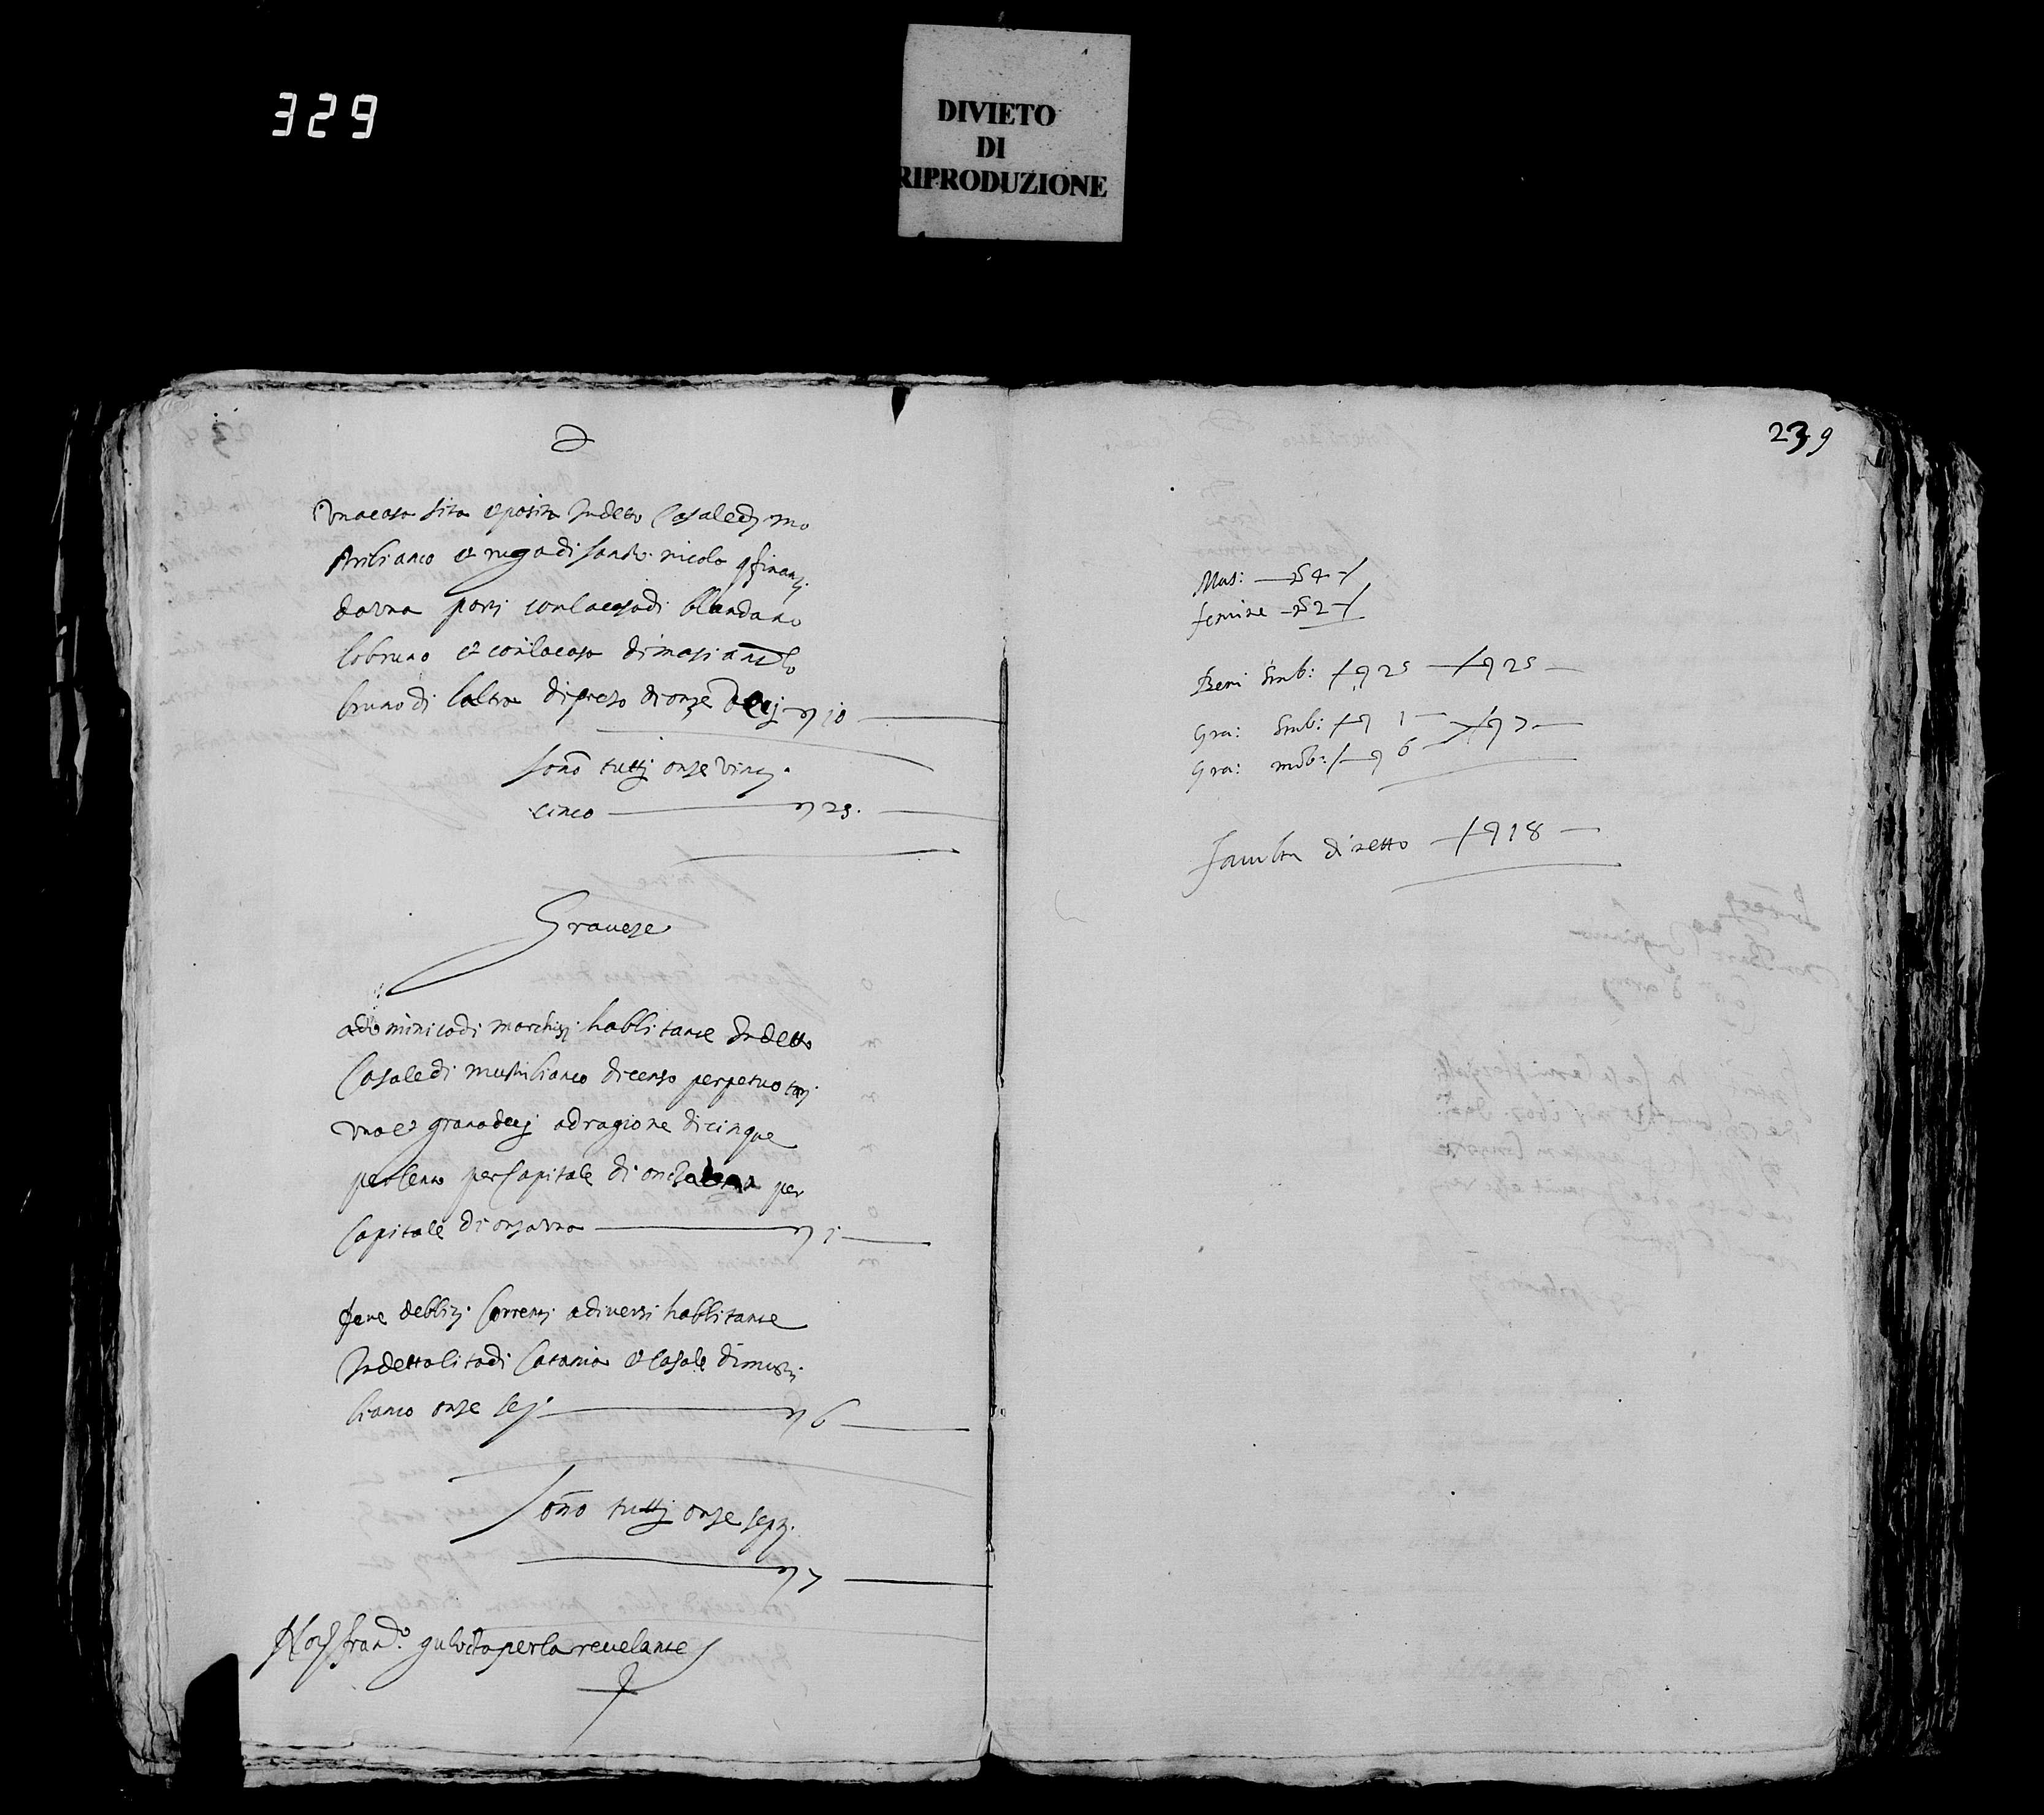 329
DIVIETO
DI
RIPRODUZIONE
una casa sita et posita In detto Casale di mo
stirbianco et ruga di santo nicolo confinanti
da una parti con la casa di blandano
lo bruno et con la casa di masi ant.
bruno di laltra di prezo di onze deci 10
sono tutti onze vinti
cinco 25.
Graveze
a dominico di marchisi habbitante In detto
Casale di mustirbianco di censo perpetuo tari
uno et grana deci a dragione di cinque
per cento per capitale di onza per
capitale di onza una 1
deve debbiti correnti a diversi habbitante
In detta cita di Catania et casale di musti
bianco onze sej 6
sono tutti onze septi
7
franc.o per la revelante
239
Mas: — n° 4
femine — n° 2
Beni Stab: 25 25
Gra: Stab: 1
Gra: mob: 6 7
faculta di netto 18